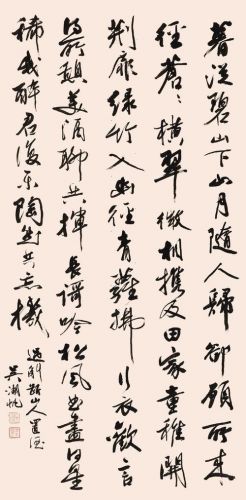 暮從碧山下山月隨人歸卻顧所來
徑蒼〻橫翠微相攜及田家童稚開
荊扉綠竹入幽徑青蘿拂行衣歡言
得所憩美酒聊共揮長謌吟松風曲盡河星
稀我醉君復樂陶然共忘機
過斛斯山人置酒
吳湖帆